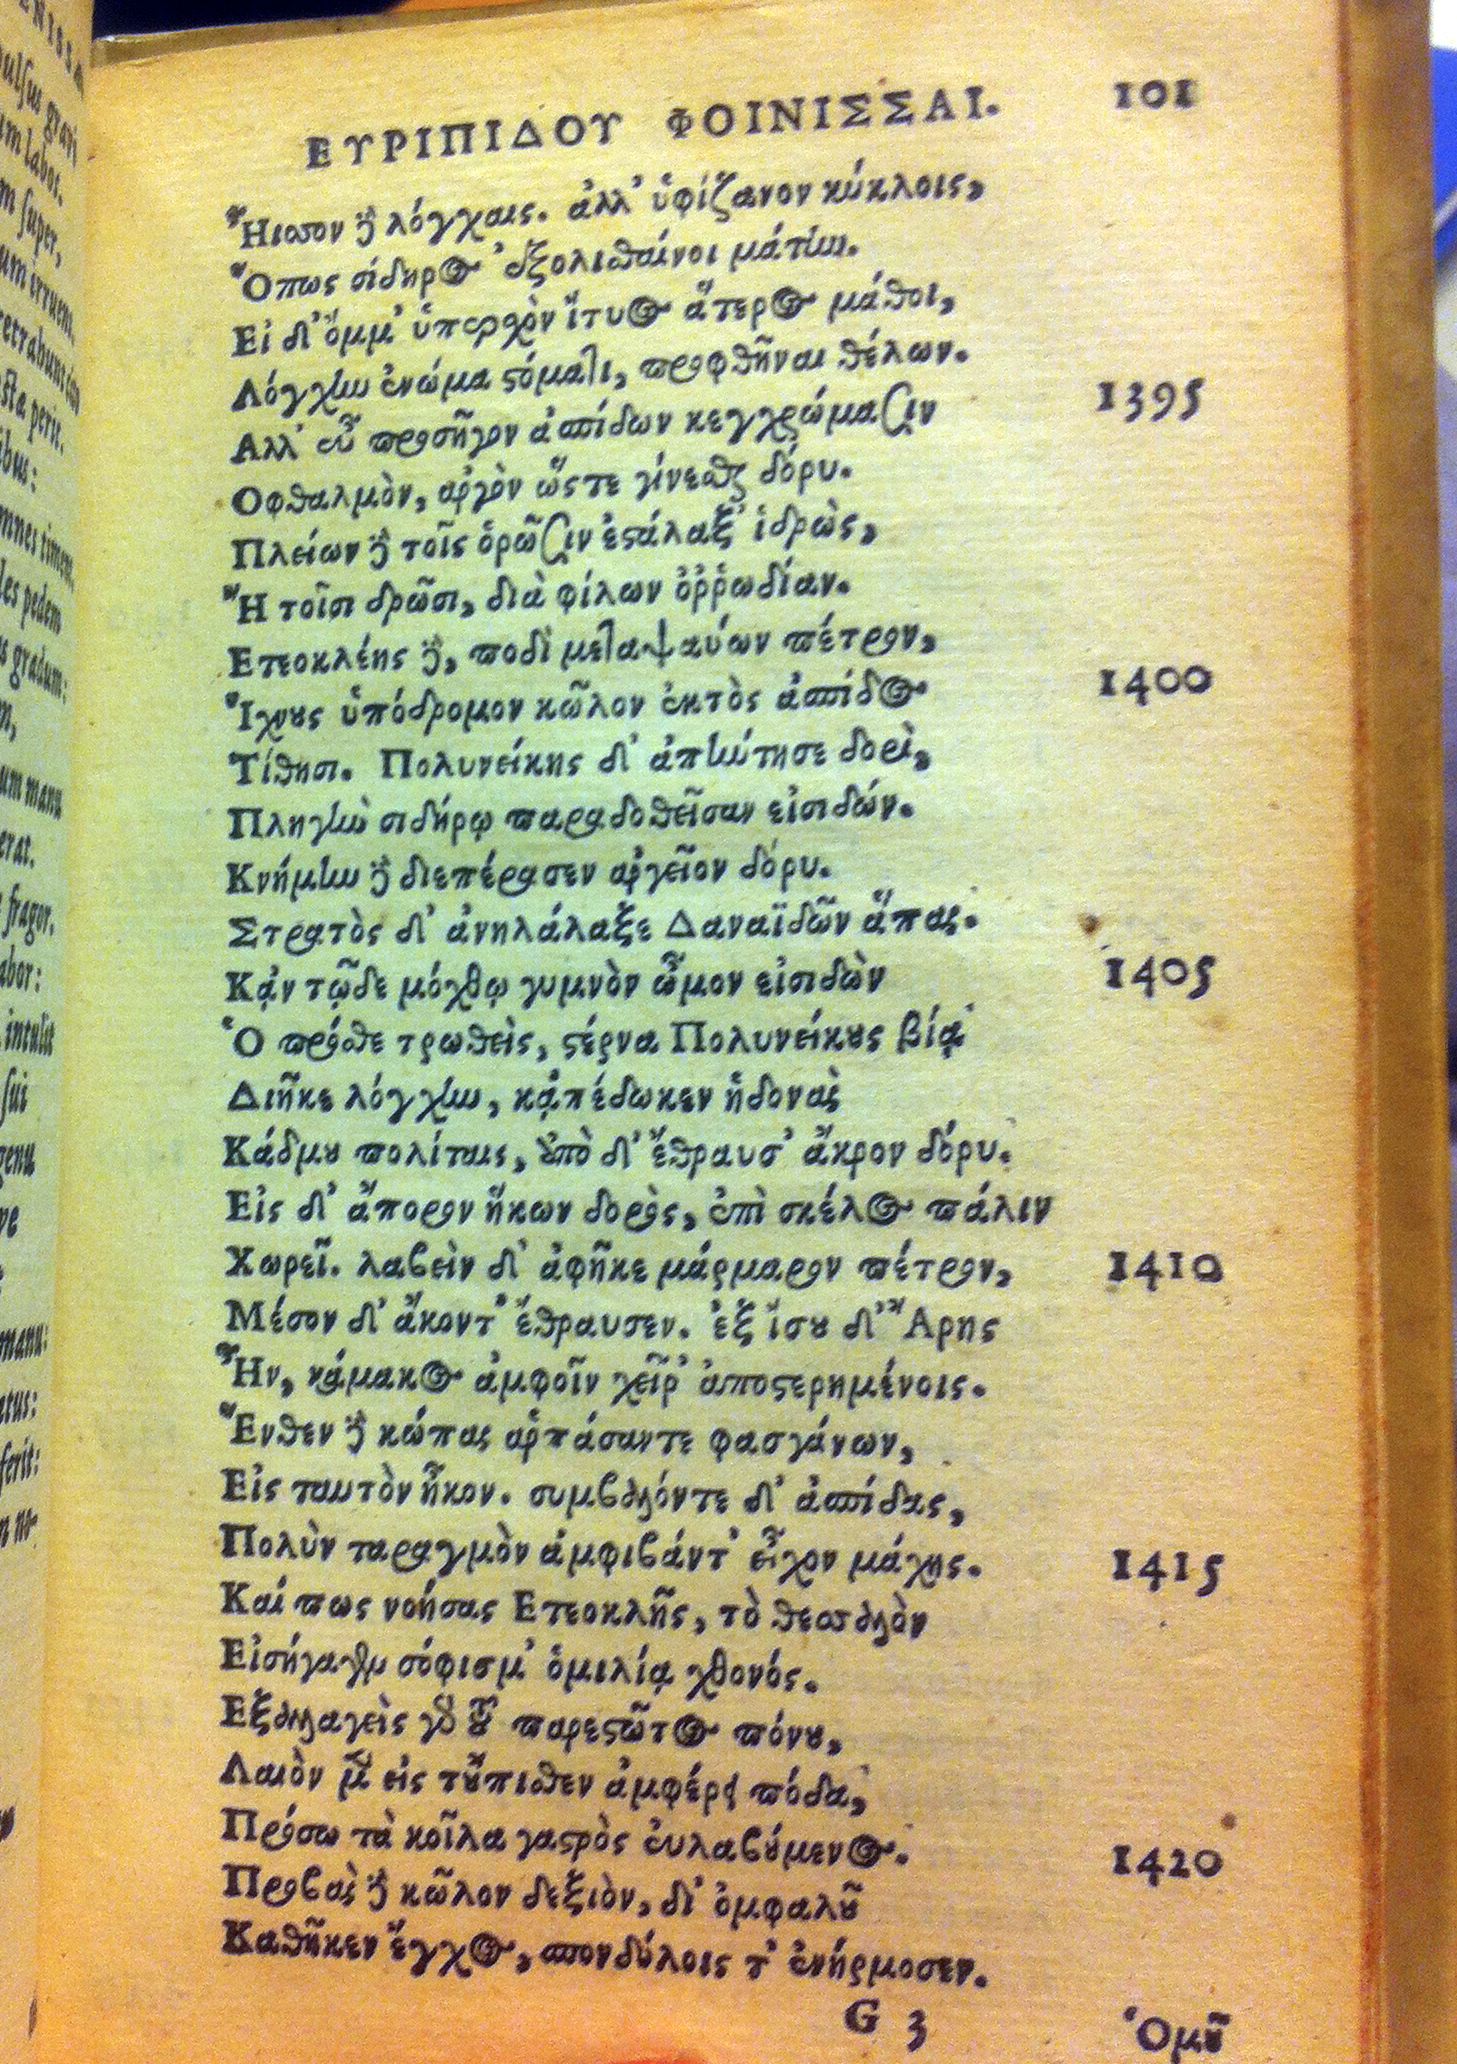 ΕΥΡΙΠΙΔΟΥ ΦΟΙΝΙΣΣΑΙ. 101
Ἤισσον δὲ λόγχαις. ἀλλ' ὑφίζανον κύκλοις,
Ὅπως σίδηρος ἐξολισθαίνοι μάτην.
Εἰ δ' ὄμμ' ὑπερχὸν ἴτυος ἅτερος μάθοι,
Λόγχην ἐνώμα στόματι, προφθῆναι θέλων.
Αλλ' εὖ προσῆγον ἀσπίδων κεγχρώμασιν 1395
Οφθαλμὸν, ἀργὸν ὥστε γίνεσθαι δόρυ.
Πλείων δὲ τοῖς ὁρῶσιν ἐστάλαξ' ἱδρὼς,
Ἢ τοῖσι δρῶσι, διὰ φίλων ὀῤῥωδίαν.
Ετεοκλέης δὲ, ποδὶ μεταψαύων πέτρον,
Ἴχνους ὑπόδρομον κῶλον ἐκτὸς ἀσπίδος 1400
Τίθησι. Πολυνείκης δ' ἀπήντησε δορὶ,
Πληγὴν σιδήρῳ παραδοθεῖσαν εἰσιδών.
Κνήμην δὲ διεπέρασεν ἀργεῖον δόρυ.
Στρατὸς δ' ἀνηλάλαξε Δαναϊδῶν ἅπας.
Κᾀν τῷδε μόχθῳ γυμνὸν ὦμον εἰσιδὼν 1405
Ὁ πρόσθε τρωθεὶς, στέρνα Πολυνείκους βίᾳ
Διῆκε λόγχην, κᾀπέδωκεν ἡδονὰς
Κάδμου πολίταις, ἀπὸ δ' ἔθραυσ' ἄκρον δόρυ.
Εἰς δ' ἄπορον ἥκων δορὸς, ἐπὶ σκέλος πάλιν
Χωρεῖ. λαβεὶν δ' ἀφῆκε μάρμαρον πέτρον, 1410
Μέσον δ' ἄκοντ' ἔθραυσεν. ἐξ ἴσου δ' Ἄρης
Ἦν, κάμακος ἀμφοῖν χεῖρ' ἀποστερημένοις.
Ἔνθεν δὲ κώπας ἁρπάσαντε φασγάνων,
Εἰς ταυτὸν ἧκον. συμβαλόντε δ' ἀσπίδας,
Πολὺν ταραγμὸν ἀμφιβάντ' εἶχον μάχης. 1415
Καί πως νοήσας Ετεοκλῆς, τὸ θεσσαλὸν
Εἰσήγαγεν σόφισμ' ὁμιλίᾳ χθονός.
Εξαλλαγεὶς γὰρ τοῦ παρεστῶτος πόνου,
Λαιὸν μὲν εἰς τοὔπισθεν ἀμφέρει πόδα,
Πρόσω τὰ κοῖλα γαστρὸς εὐλαβούμενος. 1420
Προβὰς δὲ κῶλον δεξιὸν, δι' ὀμφαλοῦ
Καθῆκεν ἔγχος, σπονδύλοις τ' ἐνήρμοσεν.
G 3 Ὁμοῦ